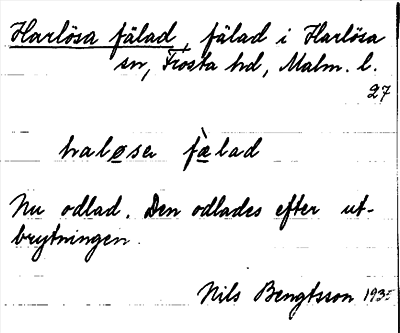 Harlösa fälad, fälad i Harlösa
sn, Frosta hd, Malm. l.
27
haløsa fælad
Nu odlad. Den odlades efter ut-
brytningen.
Nils Bengtsson